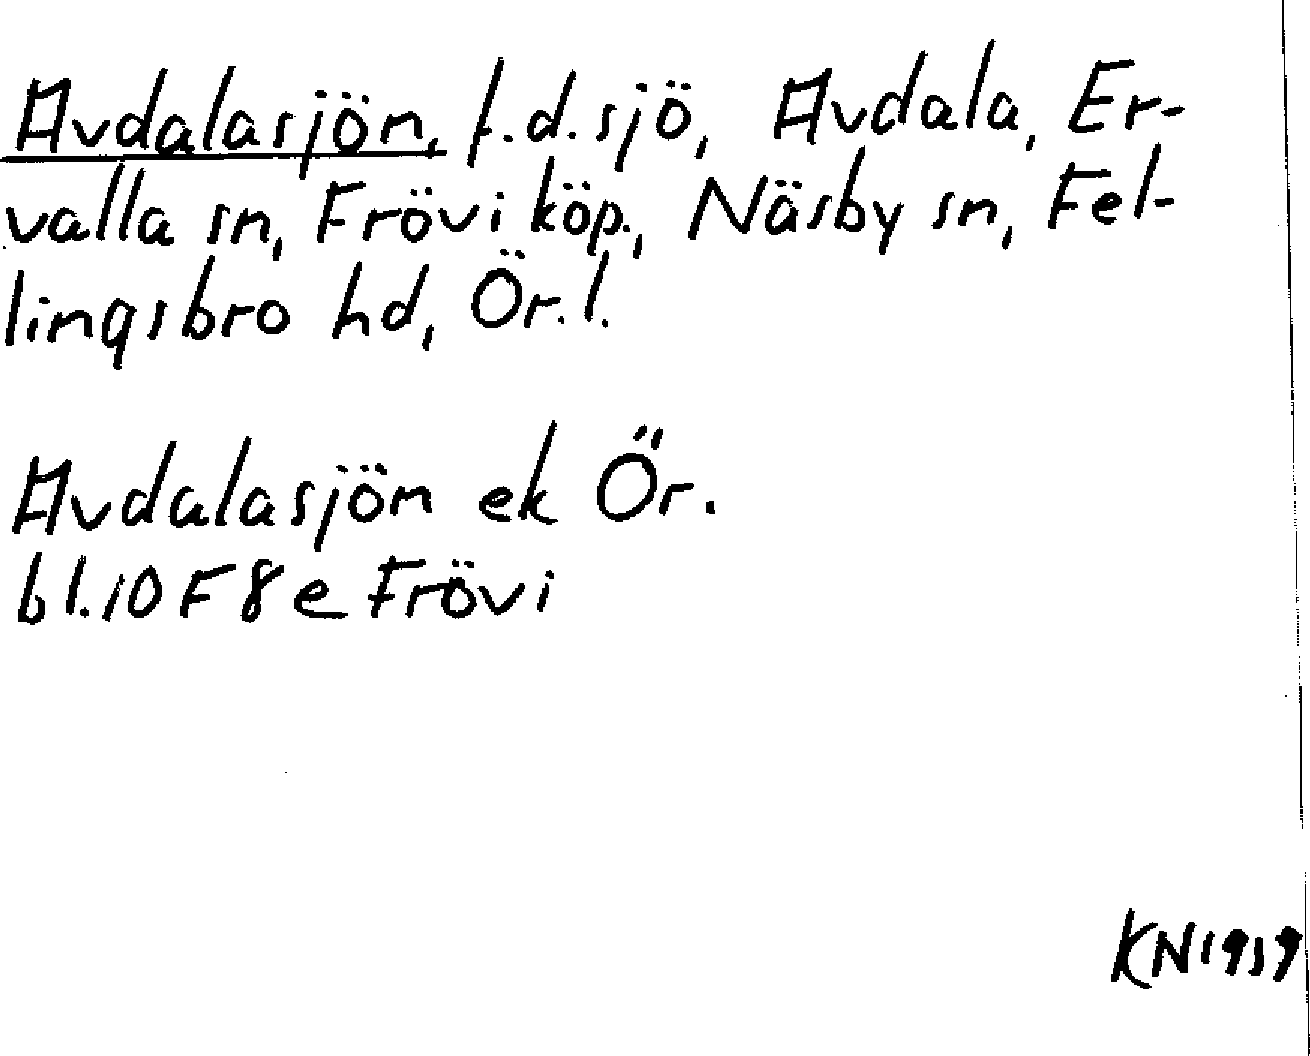 Avdalasjön, f.d. sjö, Avdala, Er-
valla sn, Frövi köp., Näsby sn, Fel-
lingsbro hd, Ör. l.
Avdalasjön ek Ör.
bl. 10 F 8 e Frövi
KN